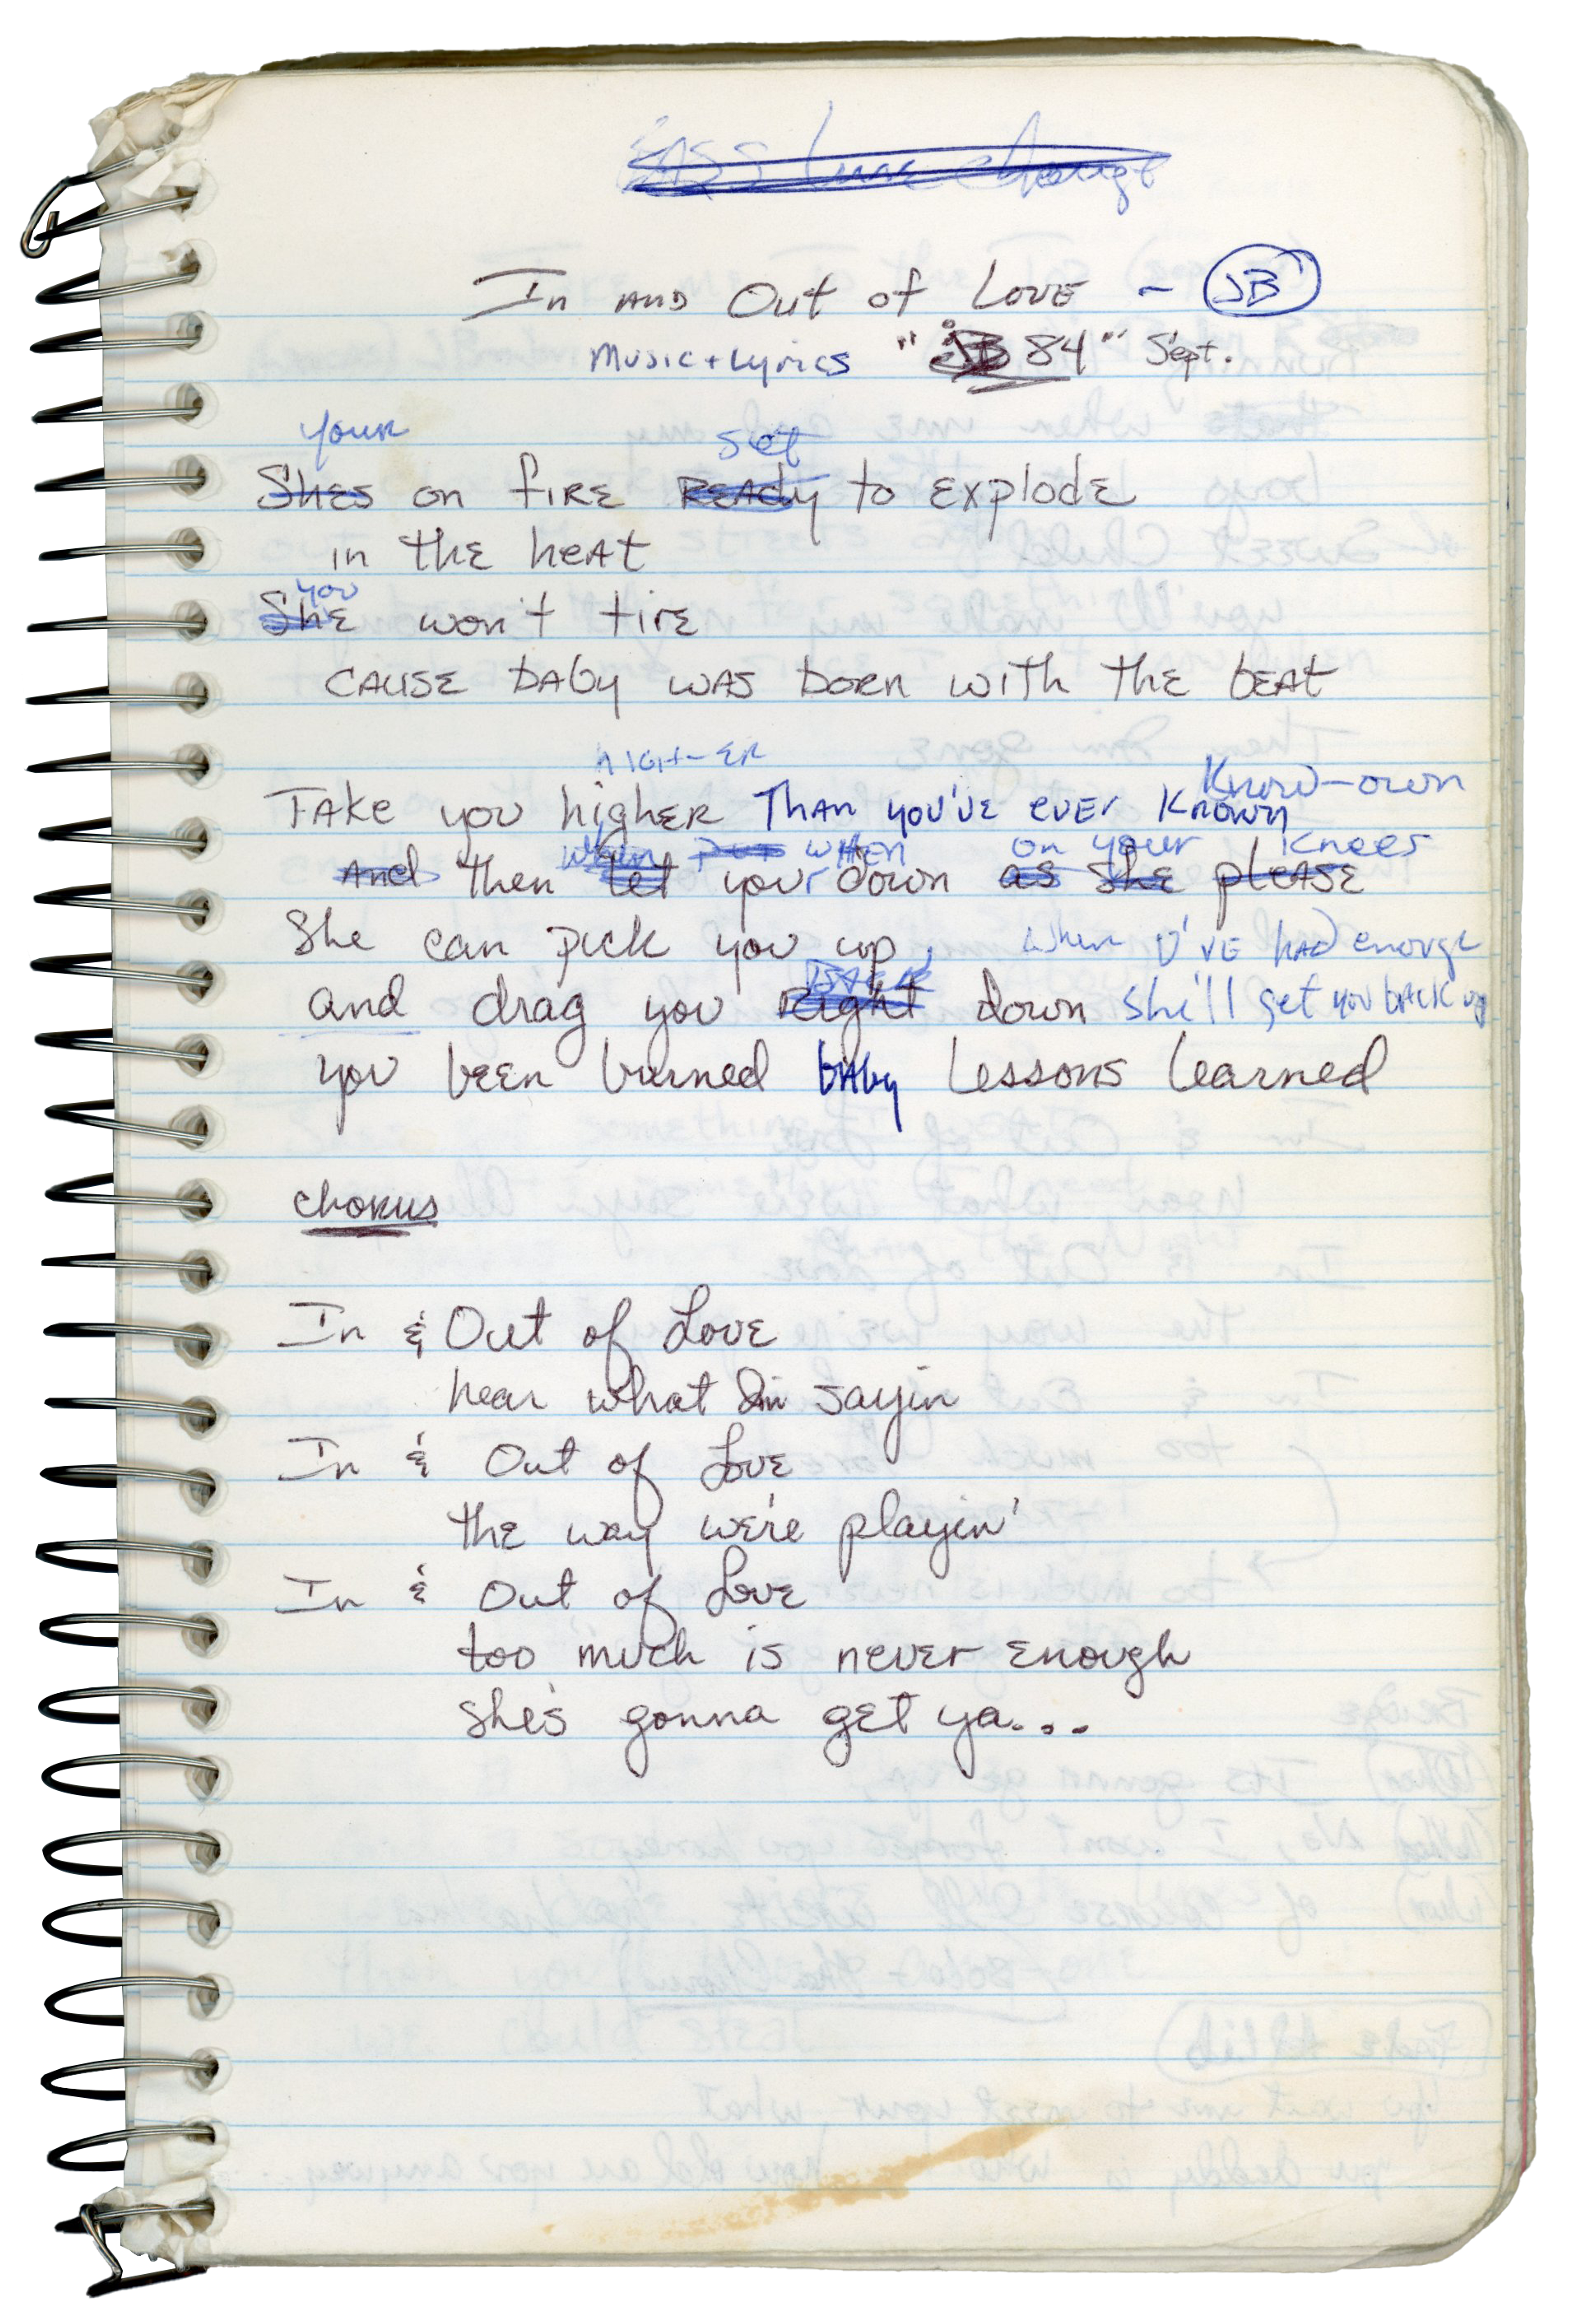 BASS line change
In AND Out of LOVE ~ JB
Music + Lyrics "JB 84" Sept.
your set
Shes on fIRE READy to ExplodE
in thE hEAt
you
ShE won't tirE
CAUSE bAby WAS born with thE bEAt
hIGH-ER Know-own
TAke you highER Than you'vE EVEr Known
when put WHEN on your Knees
And then let your down as she plEASE
She can pick you up, When U'VE hAD enough
and drag you Right down she'll get you bACK up
you bEEn burned bAby Lessons Learned
choRus
In & Out of LovE
hear what Im sayin
In & Out of LovE
thE way we're playin'
In & Out of LovE
too much is nevEr Enough
she's gonna gEt ya...